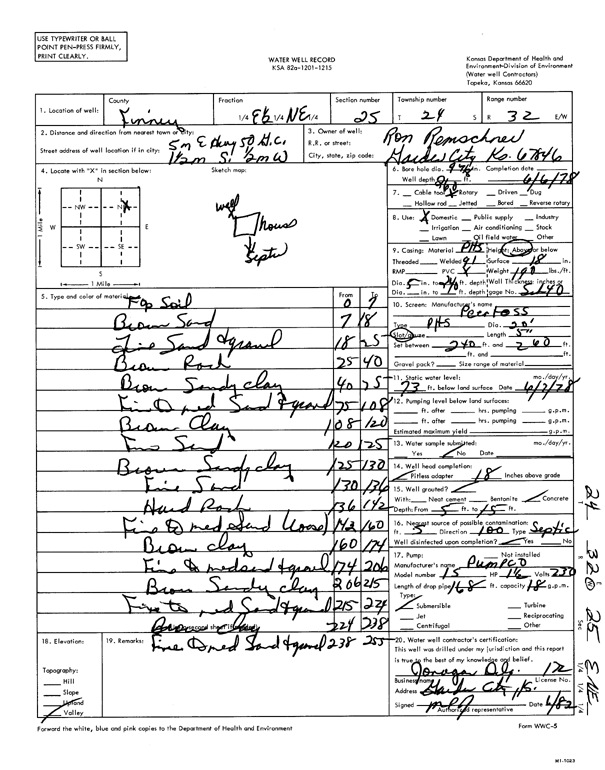 USE TYPEWRITER OR BALL
POINT PEN-PRESS FIRMLY,
PRINT CLEARLY.
WATER WELL RECORD
KSA 82a-1201-1215
Kansas Department of Health and
Environment-Division of Environment
(Water well Contractors)
Topeka, Kansas 66620
1. Location of well:
County Finney
Fraction 1/4 E½ 1/4 NE 1/4
Section number 25
Township number T 24 S
Range number R 32 E/W
2. Distance and direction from nearest town or city: 5 m E Hwy 50 G.C.
Street address of well location if in city: 1½ m S. ½ m W
3. Owner of well: Ron
R.R. or street:
City, state, zip code: Garden City Ks. 67846
4. Locate with "X" in section below:
N
NW
NE X
W
E
SW
SE
S
1 Mile
1 Mile
Sketch map:
well
house
Septic
6. Bore hole dia. 9 7/8 in. Completion date
Well depth 260 ft. 6/6/78
7. Cable tool X Rotary Driven Dug
Hollow rod Jetted Bored Reverse rotary
8. Use: X Domestic Public supply Industry
Irrigation Air conditioning Stock
Lawn Oil field water Other
9. Casing: Material Height: Above or below
Threaded Welded Surface 18 in.
RMP PVC Weight lbs./ft.
Dia. 5 in. to ft. depth Wall Thickness: inches or
Dia. in. to ft. depth gage No.
5. Type and color of material
From To
Top Soil 0 7
Brown Sand 7 18
Fine Sand & gravel 18 25
Brown Rock 25 40
Brown Sandy clay 40 75
Fine to med Sand & gravel 75 108
Brown Clay 108 120
Fine Sand 120 125
Brown Sandy clay 125 130
Fine Sand 130 136
Hard Rock 136 142
Fine to med sand loose 142 160
Brown clay 160 174
Fine to med sand & gravel 174 206
Brown Sandy clay 206 215
Fine to med Sand & gravel 215 224
224 238
Fine to med Sand & gravel 238 255
10. Screen: Manufacturer's name
Peerless
Type Dia. 20'
Slot/gauge Length 5"
Set between 240 ft. and 260 ft.
ft. and ft.
Gravel pack? Size range of material
11. Static water level: mo./day/yr.
73 ft. below land surface Date 6/7/78
12. Pumping level below land surfaces:
ft. after hrs. pumping g.p.m.
ft. after hrs. pumping g.p.m.
Estimated maximum yield g.p.m.
13. Water sample submitted: mo./day/yr.
Yes No Date
14. Well head completion:
Pitless adapter 18 Inches above grade
15. Well grouted?
With: Neat cement Bentonite Concrete
Depth: From 5 ft. to 15 ft.
16. Nearest source of possible contamination:
ft. 5 Direction 100 Type Septic
Well disinfected upon completion? Yes No
17. Pump: Not installed
Manufacturer's name Pumpco
Model number 15 HP 1½ Volts 230
Length of drop pipe 168 ft. capacity 18 g.p.m.
Type:
Submersible Turbine
Jet Reciprocating
Centrifugal Other
18. Elevation:
Topography:
Hill
Slope
Upland
Valley
19. Remarks:
20. Water well contractor's certification:
This well was drilled under my jurisdiction and this report
is true to the best of my knowledge and belief.
Business name License No.
Address Garden City Ks.
Signed Authorized representative
Forward the white, blue and pink copies to the Department of Health and Environment
Form WWC-5
24
32
Sec 25
E NE
1/4 1/4 1/4